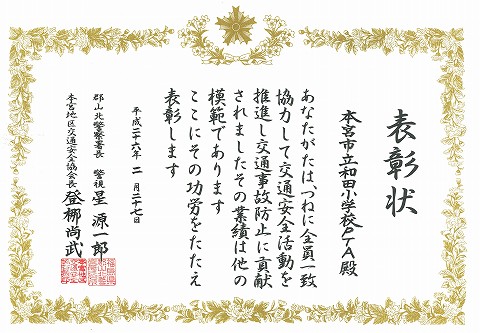 表彰状
本宮市立和田小学校PTA殿
あなたがたはつねに全員一致
協力して交通安全活動を
推進し交通事故防止に貢献
されましたその業績は他の
模範であります
ここにその功労をたたえ
表彰します
平成二十六年二月二十七日
郡山北警察署長 警視 星源一郎
本宮地区交通安全協会長 登梛尚武